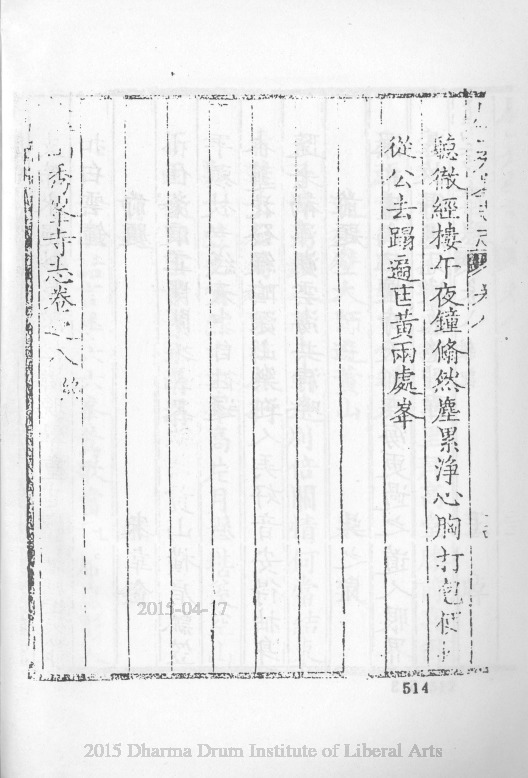 聽徹經樓午夜鐘翛然塵累淨心胸打包便
從公去蹋遍匡黃兩處峯
秀峯寺志卷之八終
514
2015-04-17
2015 Dharma Drum Institute of Liberal Arts